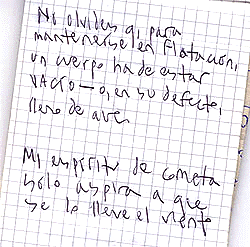 No olvides q. para
mantenerse en flotación,
un cuerpo ha de estar
VACÍO — o, en su defecto,
lleno de aire.
Mi espíritu de cometa
solo aspira a que
se lo lleve el viento